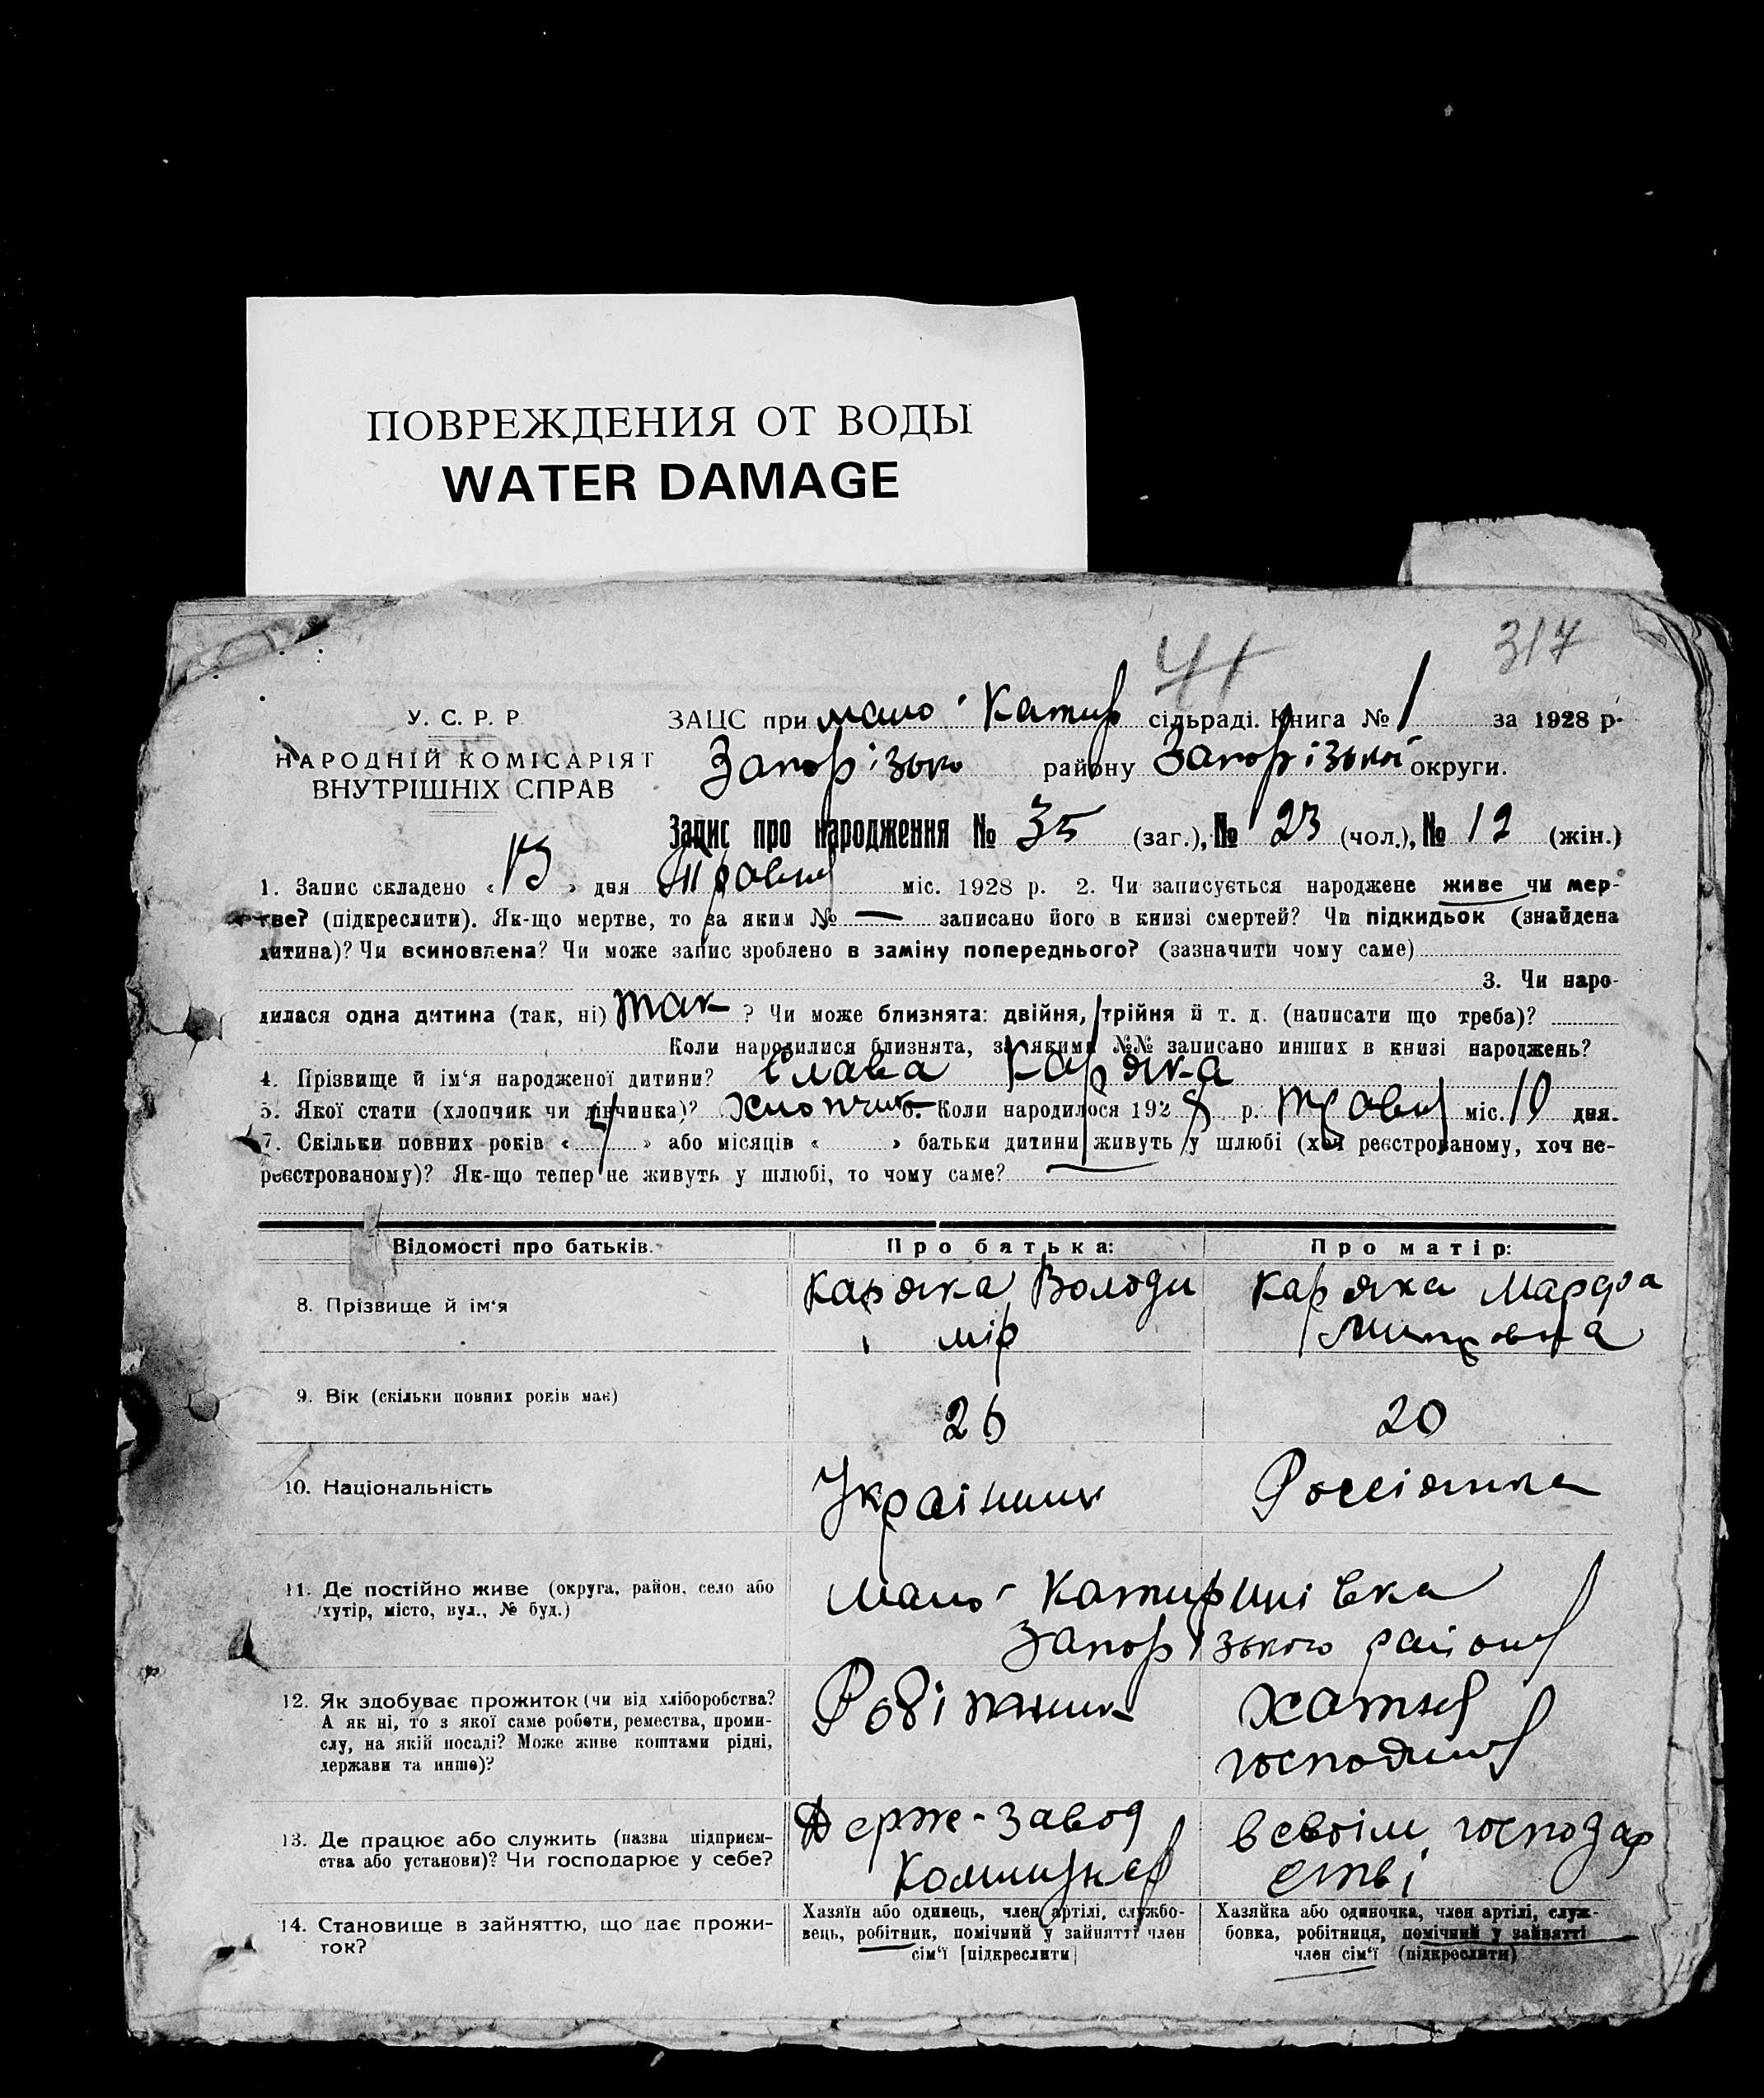 ПОВРЕЖДЕНИЯ ОТ ВОДЫ
WATER DAMAGE
317
41
У. С. Р. Р.
НАРОДНІЙ КОМІСАРІЯТ
ВНУТРІШНІХ СПРАВ
ЗАЦС при мало-Катир сільраді. Книга № 1 за 1928 р.
Запорізько району Запорізької округи.
Запис про народження № 35 (заг.), № 23 (чол.), № 12 (жін.)
1. Запис складено « 13 » дня Травня міс. 1928 р. 2. Чи записується народжене живе чи мер-
тве? (підкреслити). Як-що мертве, то за яким № — записано його в книзі смертей? Чи підкидьок (знайдена
дитина)? Чи всиновлена? Чи може запис зроблено в заміну попереднього? (зазначити чому саме)
3. Чи наро-
дилася одна дитина (так, ні) Так ? Чи може близнята: двійня, трійня й т. д. (написати що треба)?
Коли народилися близнята, за якими №№ записано инших в книзі народжень?
4. Прізвище й ім'я народженої дитини? Слава Каряка
5. Якої стати (хлопчик чи дівчинка)? Хлопчик 6. Коли народилося 1928 р. Травня міс. 10 дня.
7. Скільки повних років « » або місяців « » батьки дитини живуть у шлюбі (хоч реєстрованому, хоч не-
реєстрованому)? Як-що тепер не живуть у шлюбі, то чому саме?
Відомості про батьків. Про батька: Про матір:
8. Прізвище й ім'я Каряка Володи
мір Каряка Марфа
9. Вік (скільки повних років має) 26 20
10. Національність Українець Россіянка
11. Де постійно живе (округа, район, село або
хутір, місто, вул., № буд.)
Мало-Катиршнівка
Запорізького району
12. Як здобуває прожиток (чи від хліборобства?
А як ні, то з якої саме роботи, ремества, проми-
слу, на якій посаді? Може живе коштами рідні,
держави та инше)?
Робітник
хатня
господиня
13. Де працює або служить (назва підприєм-
ства або установи)? Чи господарює у себе?
Держ-завод
Коммунар
в своїм господар
стві
14. Становище в зайняттю, що дає прожи-
ток?
Хазяїн або одинець, член артілі, службо-
вець, робітник, помічний у зайнятті член
сім'ї [підкреслити]
Хазяйка або одиночка, член артілі, служ-
бовка, робітниця, помічний у зайнятті
член сім'ї (підкреслити)